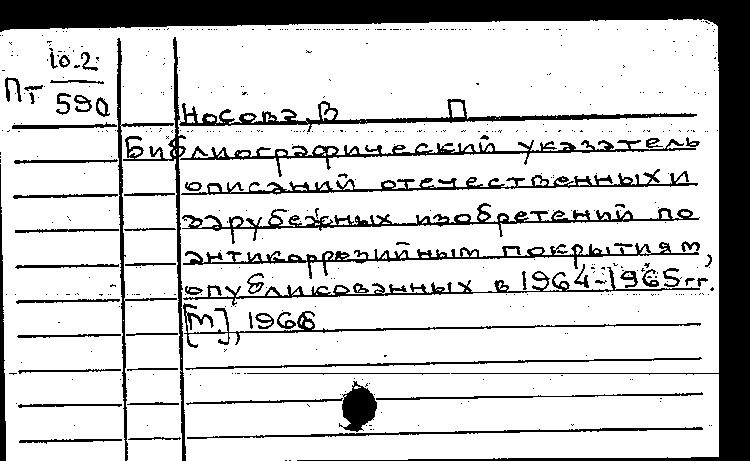 Пт 10.2
590
Носова, В П
Библиографический указатель
описаний отечественных и
зарубежных изобретений по
антикаррозийным покрытиям,
опубликованных в 1964-1965 гг.
[М.], 1966